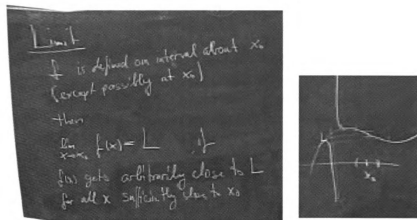 Limit
f is defined on interval about x₀
(except possibly at x₀)
then
lim x→x₀ f(x) = L if
f(x) gets arbitrarily close to L
for all x sufficiently close to x₀
L
x₀